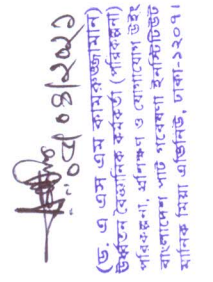 ০৫/০৪/২০২১
(ড. এ এস এম কামরুজ্জামান)
ঊর্ধ্বতন বৈজ্ঞানিক কর্মকর্তা (পরিকল্পনা)
পরিকল্পনা, প্রশিক্ষণ ও যোগাযোগ উইং
বাংলাদেশ পাট গবেষণা ইনস্টিটিউট
মানিক মিয়া এভিনিউ, ঢাকা-১২০৭।